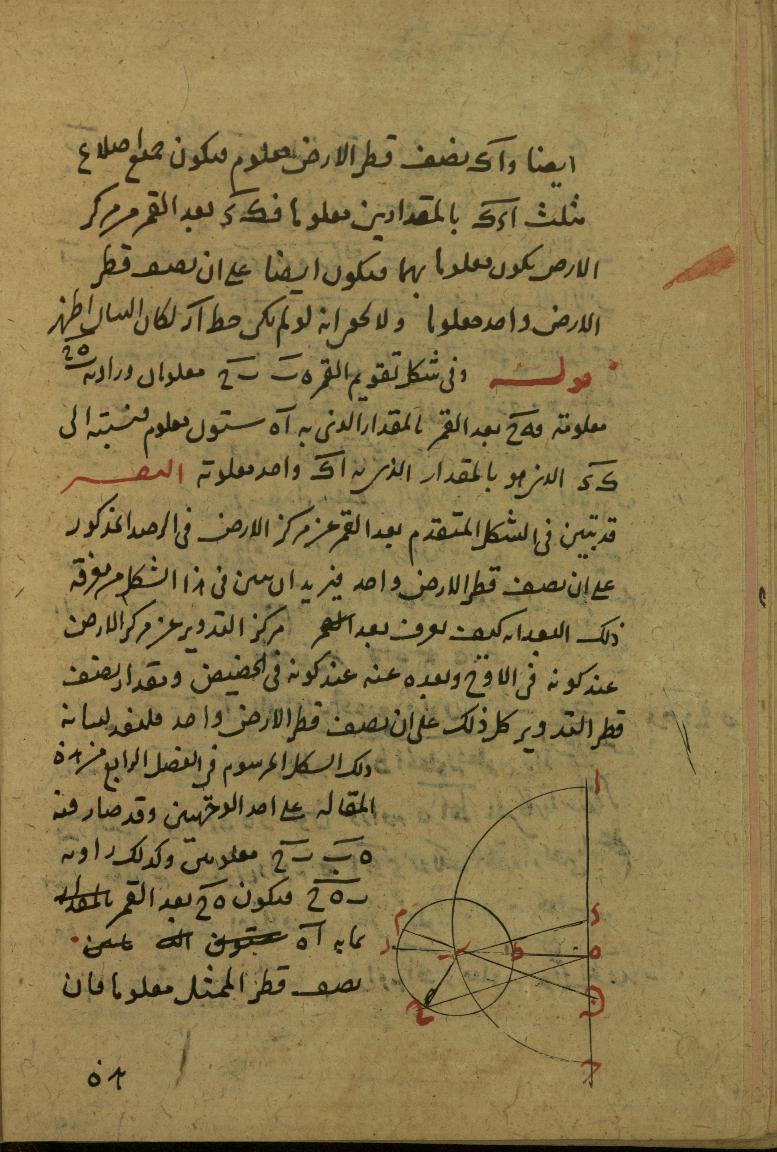 ايضا و اك نصف قطر الارض معلوم فيكون جميع اضلاع
مثلث اك بالمقدارين معلوما فك بعد القمر من مركز
الارض يكون معلوما بهما فيكون ايضا على ان نصف قطر
الارض واحد معلوما ولا يخفى انه لو لم يكن خط لكان البيان اظهر
قوله وفى شكل تقويم القمر ه ب ب ح معلومان وزاوية ب ه ح
معلومة فه ح بعد القمر بالمقدار الذى به ا ه ستون معلوم فنسبته الى
الذى هو بالمقدار الذى به اك واحد معلومة التفسير
قد تبين فى الشكل المتقدم بعد القمر عن مركز الارض فى الرصد المذكور
على ان نصف قطر الارض واحد فيريد ان يبين فى هذا الشكل من معرفة
ذلك البعد انه كيف يعرف بعد مركز التدوير عن مركز الارض
عند كونه فى الاوج وبعده عنه عند كونه فى الحضيض ومقدار نصف
قطر التدوير كل ذلك على ان نصف قطر الارض واحد فليعد لبيانه
ذلك الشكل المرسوم فى الفصل الرابع من هذه
المقالة على احد الوجهين وقد صار فيه
ه ب ب ح معلومين وكذلك زاوية
ب ه ح فيكون ه ح بعد القمر بالمقدار
بمابه ا ه ستون
نصف قطر الممثل معلوما فان
ا
د
م
ه
ط
ب
ز
ن
ح
ج
هذه